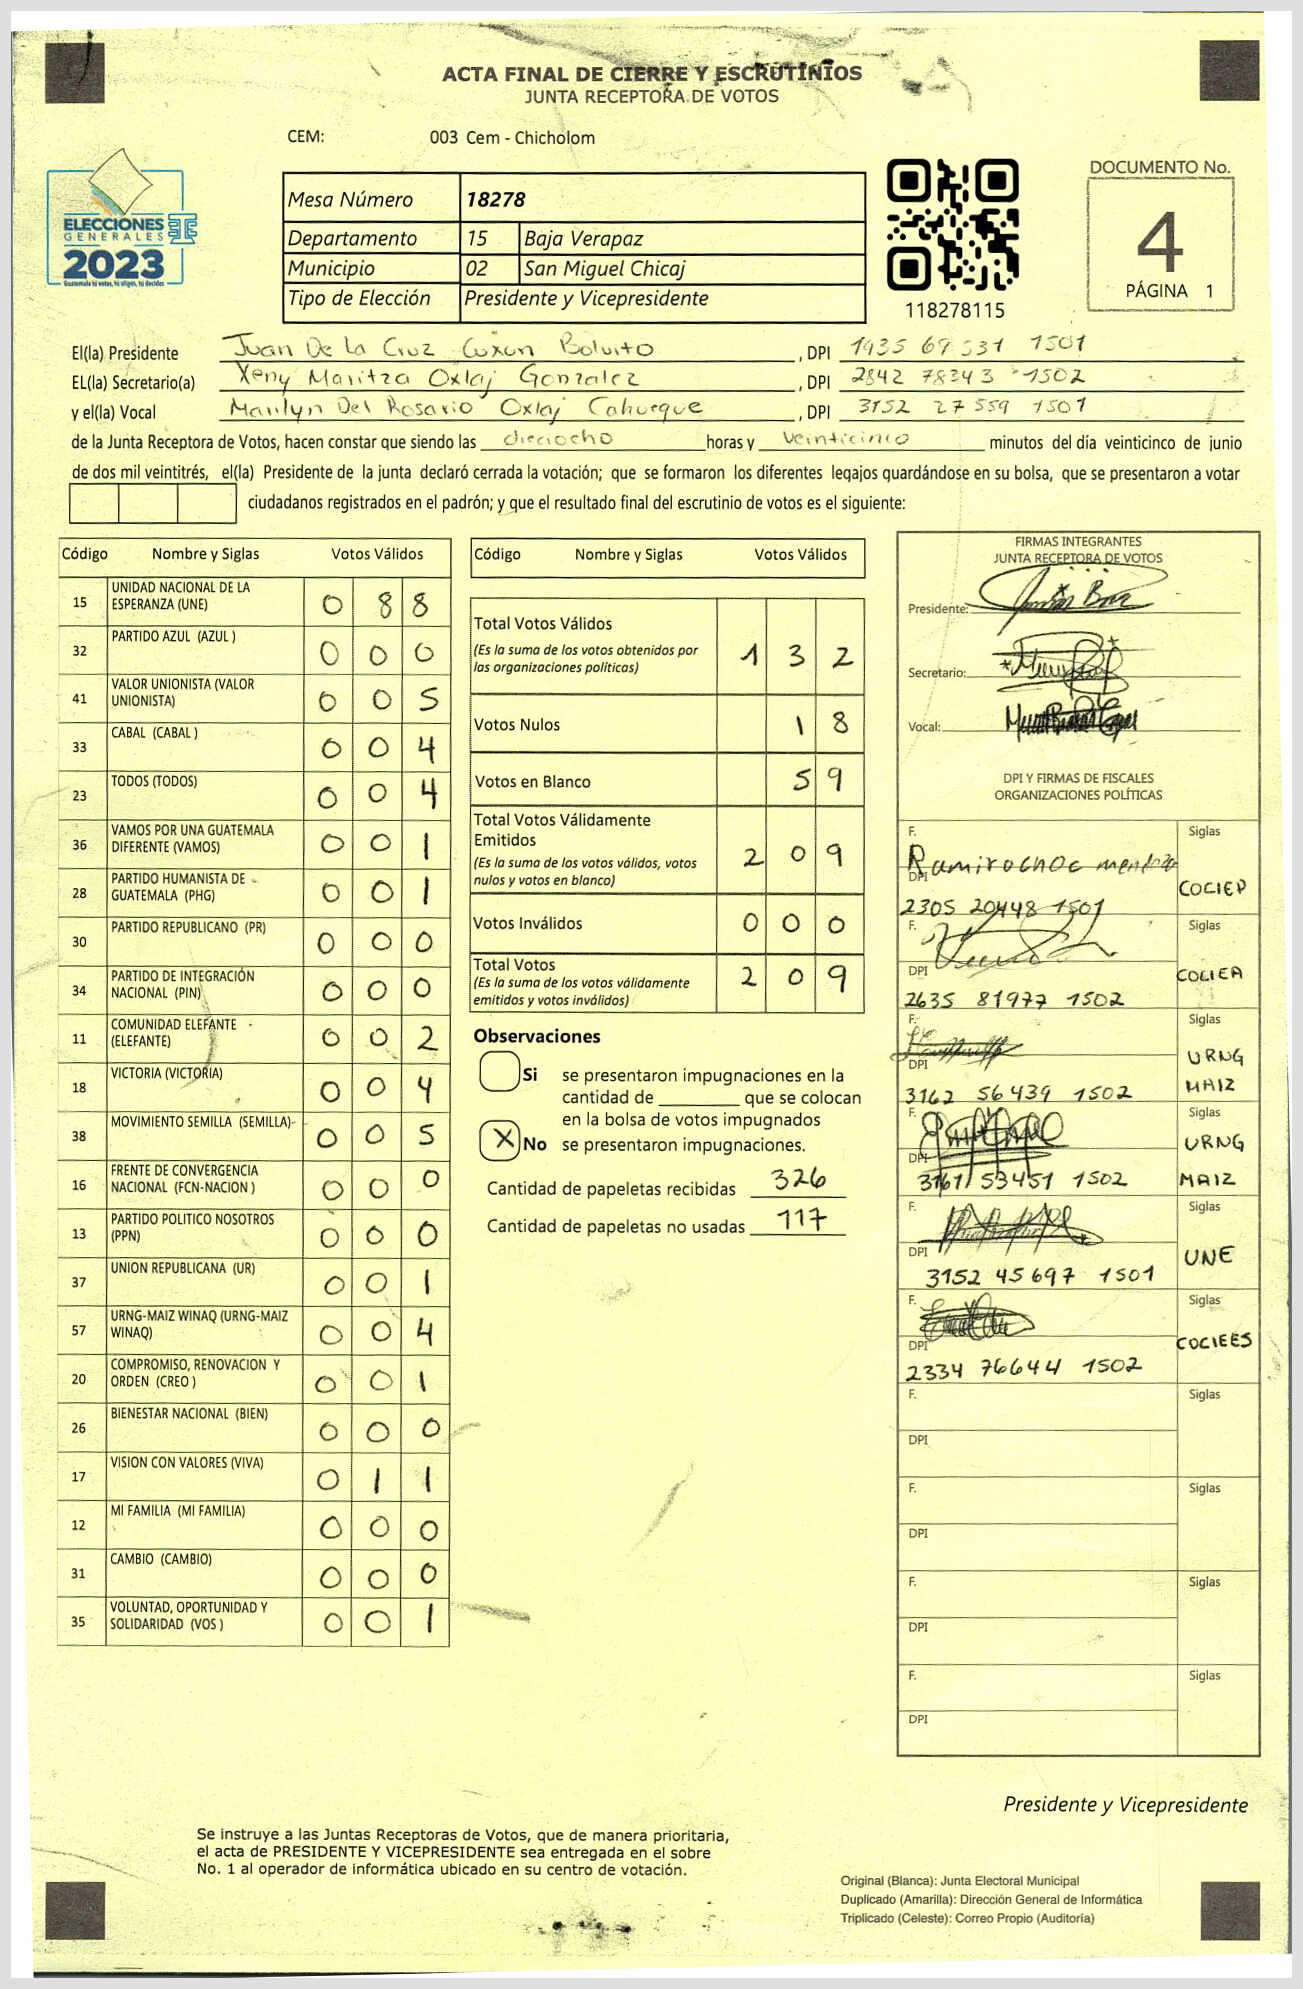 ACTA FINAL DE CIERRE Y ESCRUTINIOS
JUNTA RECEPTORA DE VOTOS
CEM: 003 Cem - Chicholom
ELECCIONES
GENERALES
2023
Guatemala tú votas, tú eliges, tú decides
Mesa Número 18278
Departamento 15 Baja Verapaz
Municipio 02 San Miguel Chicaj
Tipo de Elección Presidente y Vicepresidente
118278115
DOCUMENTO No.
4
PÁGINA 1
El(la) Presidente Juan De La Cruz Cuxun Boluito, DPI 1935 69531 1501
EL(la) Secretario(a) Xeny Maritza Oxlaj Gonzalez, DPI 2842 78343 1502
y el(la) Vocal Marilyn Del Rosario Oxlaj Cahueque, DPI 3152 27559 1501
de la Junta Receptora de Votos, hacen constar que siendo las dieciocho horas y veinticinco minutos del día veinticinco de junio
de dos mil veintitrés, el(la) Presidente de la junta declaró cerrada la votación; que se formaron los diferentes legajos guardándose en su bolsa, que se presentaron a votar
ciudadanos registrados en el padrón; y que el resultado final del escrutinio de votos es el siguiente:
Código Nombre y Siglas Votos Válidos
15 UNIDAD NACIONAL DE LA ESPERANZA (UNE) 0 8 8
32 PARTIDO AZUL (AZUL ) 0 0 0
41 VALOR UNIONISTA (VALOR UNIONISTA) 0 0 5
33 CABAL (CABAL ) 0 0 4
23 TODOS (TODOS) 0 0 4
36 VAMOS POR UNA GUATEMALA DIFERENTE (VAMOS) 0 0 1
28 PARTIDO HUMANISTA DE GUATEMALA (PHG) 0 0 1
30 PARTIDO REPUBLICANO (PR) 0 0 0
34 PARTIDO DE INTEGRACIÓN NACIONAL (PIN) 0 0 0
11 COMUNIDAD ELEFANTE (ELEFANTE) 0 0 2
18 VICTORIA (VICTORIA) 0 0 4
38 MOVIMIENTO SEMILLA (SEMILLA) 0 0 5
16 FRENTE DE CONVERGENCIA NACIONAL (FCN-NACION ) 0 0 0
13 PARTIDO POLITICO NOSOTROS (PPN) 0 0 0
37 UNION REPUBLICANA (UR) 0 0 1
57 URNG-MAIZ WINAQ (URNG-MAIZ WINAQ) 0 0 4
20 COMPROMISO, RENOVACION Y ORDEN (CREO ) 0 0 1
26 BIENESTAR NACIONAL (BIEN) 0 0 0
17 VISION CON VALORES (VIVA) 0 1 1
12 MI FAMILIA (MI FAMILIA) 0 0 0
31 CAMBIO (CAMBIO) 0 0 0
35 VOLUNTAD, OPORTUNIDAD Y SOLIDARIDAD (VOS ) 0 0 1
Código Nombre y Siglas Votos Válidos
Total Votos Válidos 1 3 2
(Es la suma de los votos obtenidos por
las organizaciones políticas)
Votos Nulos 1 8
Votos en Blanco 5 9
Total Votos Válidamente
Emitidos 2 0 9
(Es la suma de los votos válidos, votos
nulos y votos en blanco)
Votos Inválidos 0 0 0
Total Votos 2 0 9
(Es la suma de los votos válidamente
emitidos y votos inválidos)
Observaciones
Si se presentaron impugnaciones en la
cantidad de ________ que se colocan
en la bolsa de votos impugnados
X No se presentaron impugnaciones.
Cantidad de papeletas recibidas 326
Cantidad de papeletas no usadas 117
FIRMAS INTEGRANTES
JUNTA RECEPTORA DE VOTOS
Presidente:
Secretario:
Vocal:
DPI Y FIRMAS DE FISCALES
ORGANIZACIONES POLÍTICAS
F. Ramiro choc mendoza Siglas
DPI 2305 20448 1501 COCIEP
F. Siglas
DPI 2635 81977 1502 COLIEA
F. Siglas
DPI 3162 56439 1502 URNG MAIZ
F. Siglas
DPI 3161 53451 1502 URNG MAIZ
F. Siglas
DPI 3152 45697 1501 UNE
F. Siglas
DPI 2334 76644 1502 COCIEES
F. Siglas
DPI
F. Siglas
DPI
F. Siglas
DPI
F. Siglas
DPI
Presidente y Vicepresidente
Se instruye a las Juntas Receptoras de Votos, que de manera prioritaria,
el acta de PRESIDENTE Y VICEPRESIDENTE sea entregada en el sobre
No. 1 al operador de informática ubicado en su centro de votación.
Original (Blanca): Junta Electoral Municipal
Duplicado (Amarilla): Dirección General de Informática
Triplicado (Celeste): Correo Propio (Auditoría)